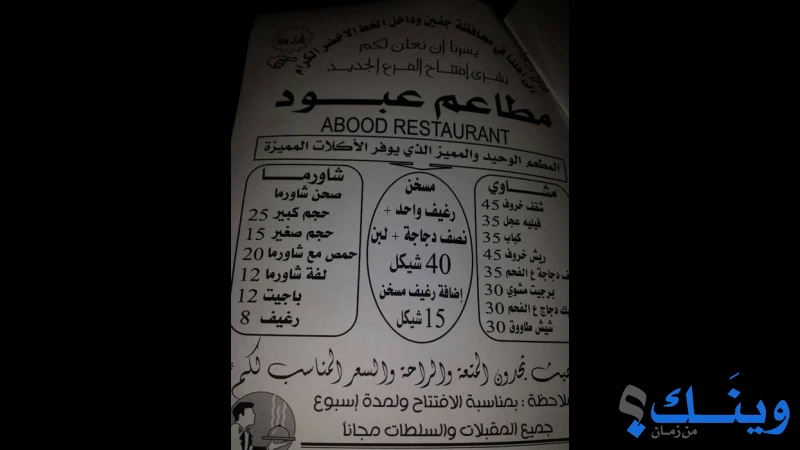 الى أهلنا في محافظة جنين وداخل الخط الاخضر الكرام
يسرنا إن نعلن لكم
بشرى إفتتاح الفرع الجديد
مطاعم عبود
ABOOD RESTAURANT
المطعم الوحيد والمميز الذي يوفر الأكلات المميزة
مشاوي
شقف خروف 45
فيليه عجل 35
كباب 35
ريش خروف 45
دجاجة ع الفحم 35
برجيت مشوي 30
دجاج ع الفحم 30
شيش طاووق 30
مسخن
رغيف واحد +
نصف دجاجة + لبن
40 شيكل
إضافة رغيف مسخن
15 شيكل
شاورما
صحن شاورما
حجم كبير 25
حجم صغير 15
حمص مع شاورما 20
لفة شاورما 12
باجيت 12
رغيف 8
حيث تجدون المتعة والراحة والسعر المناسب لكم
ملاحظة : بمناسبة الافتتاح ولمدة إسبوع
جميع المقبلات والسلطات مجانا
وينَك؟
من زمان